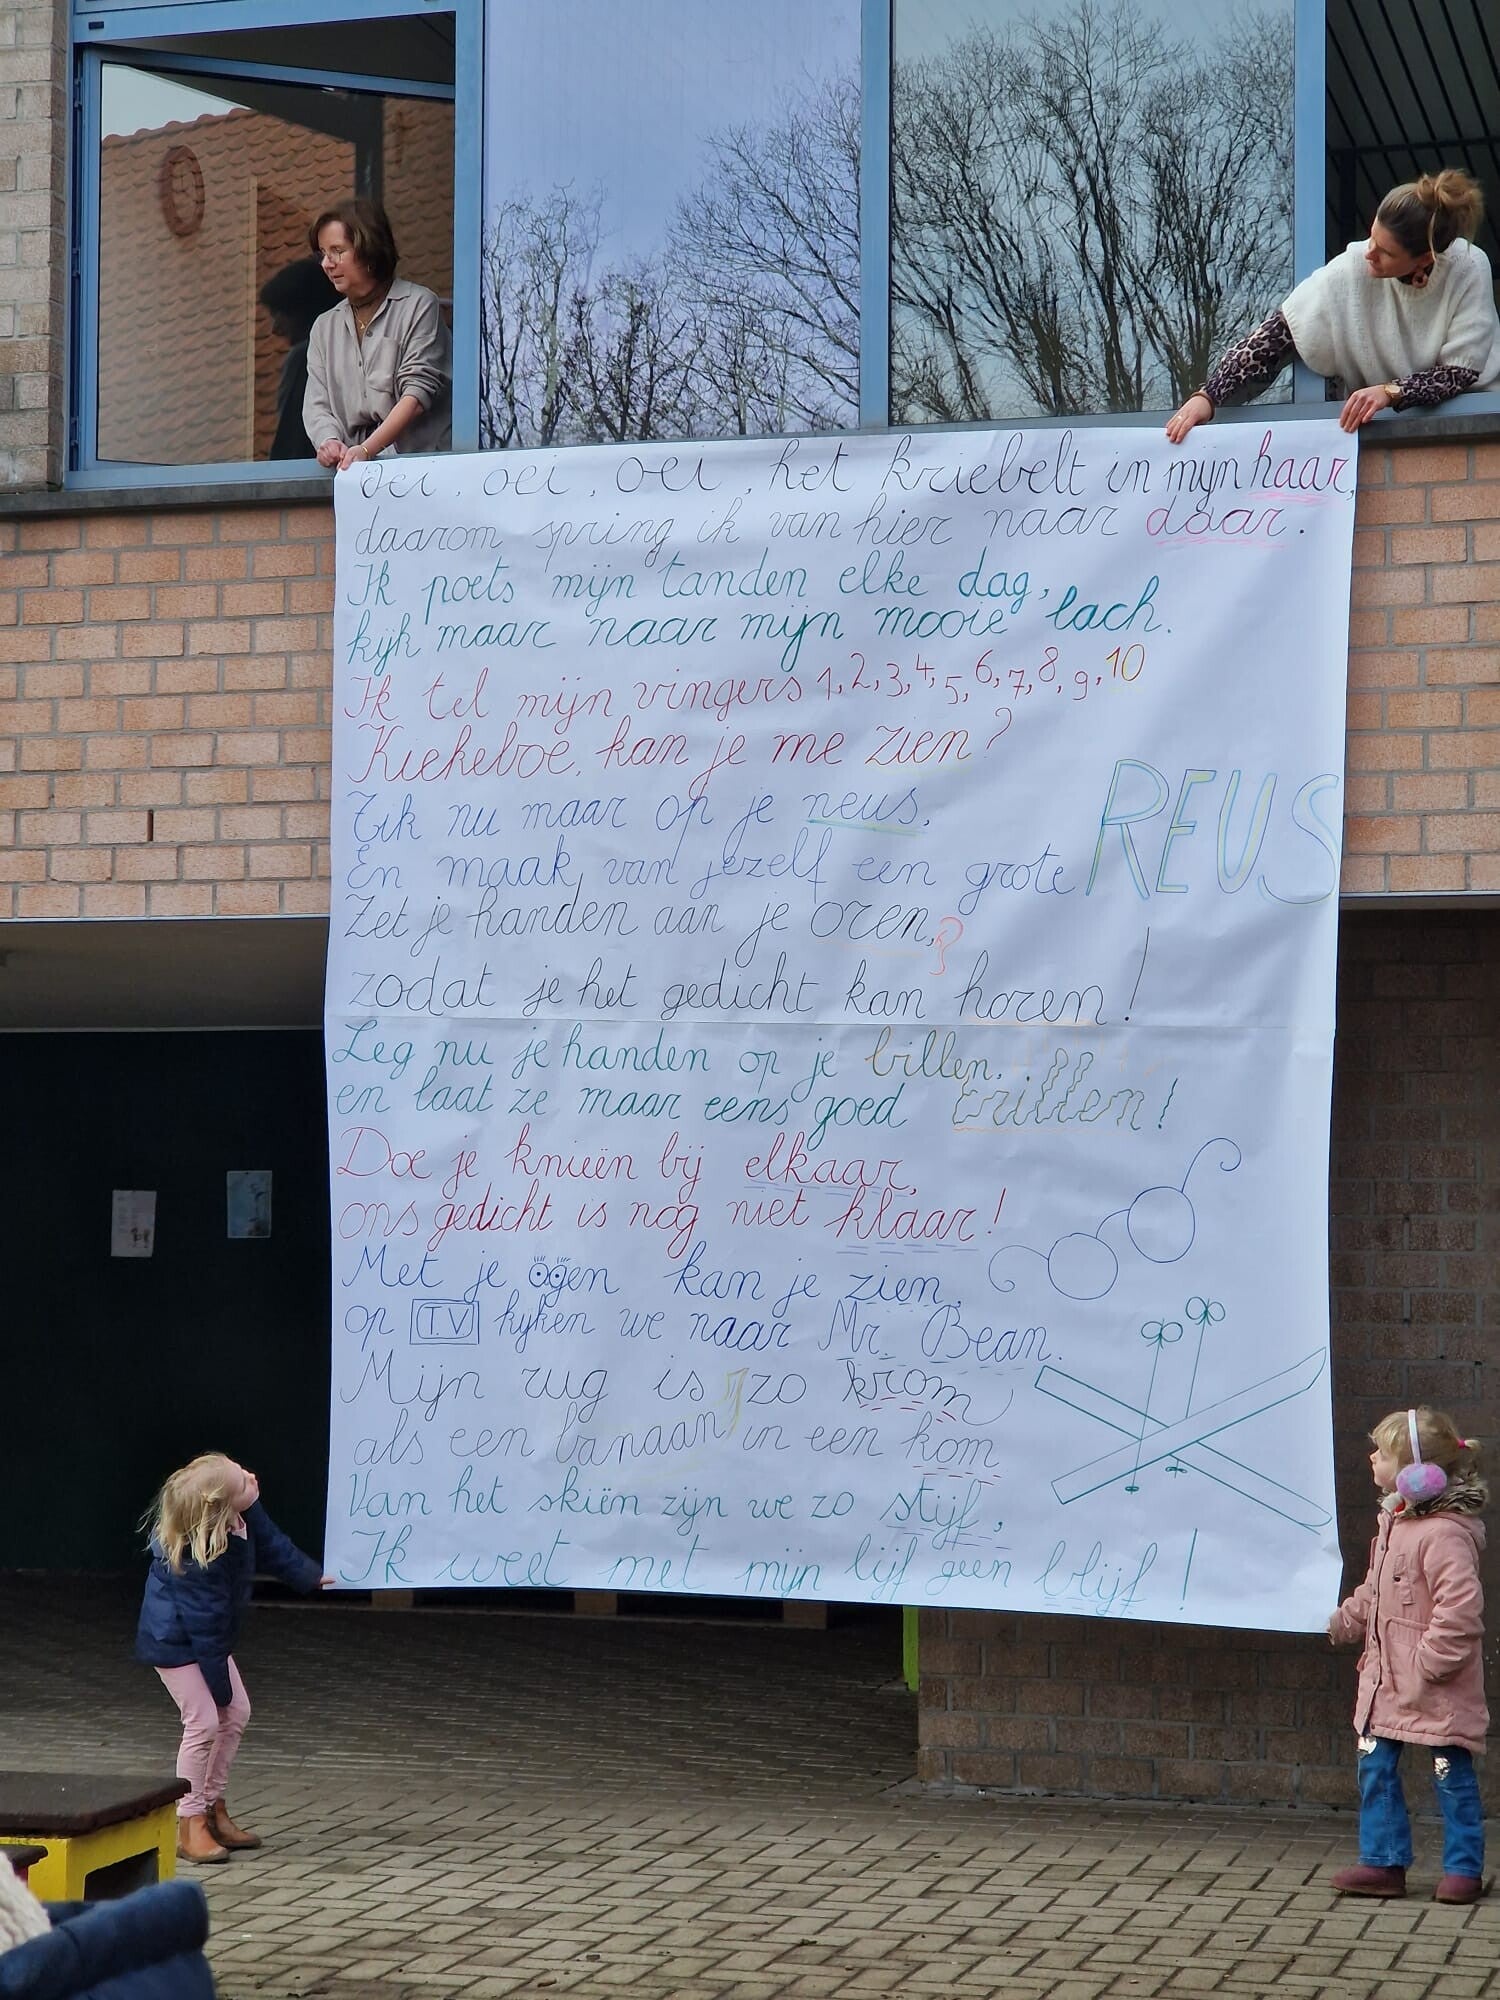 Oei, oei, oei, het kriebelt in mijn haar,
daarom spring ik van hier naar daar.
Ik poets mijn tanden elke dag,
kijk maar naar mijn mooie lach.
Ik tel mijn vingers 1, 2, 3, 4, 5, 6, 7, 8, 9, 10
Kiekeboe, kan je me zien?
Tik nu maar op je neus,
En maak van jezelf een grote REUS
Zet je handen aan je oren,
zodat je het gedicht kan horen!
Leg nu je handen op je billen,
en laat ze maar eens goed trillen!
Doe je knieën bij elkaar,
ons gedicht is nog niet klaar!
Met je ogen kan je zien,
op T.V kijken we naar Mr. Bean.
Mijn rug is zo krom
als een banaan in een kom
Van het skiën zijn we zo stijf,
Ik weet met mijn lijf geen blijf!